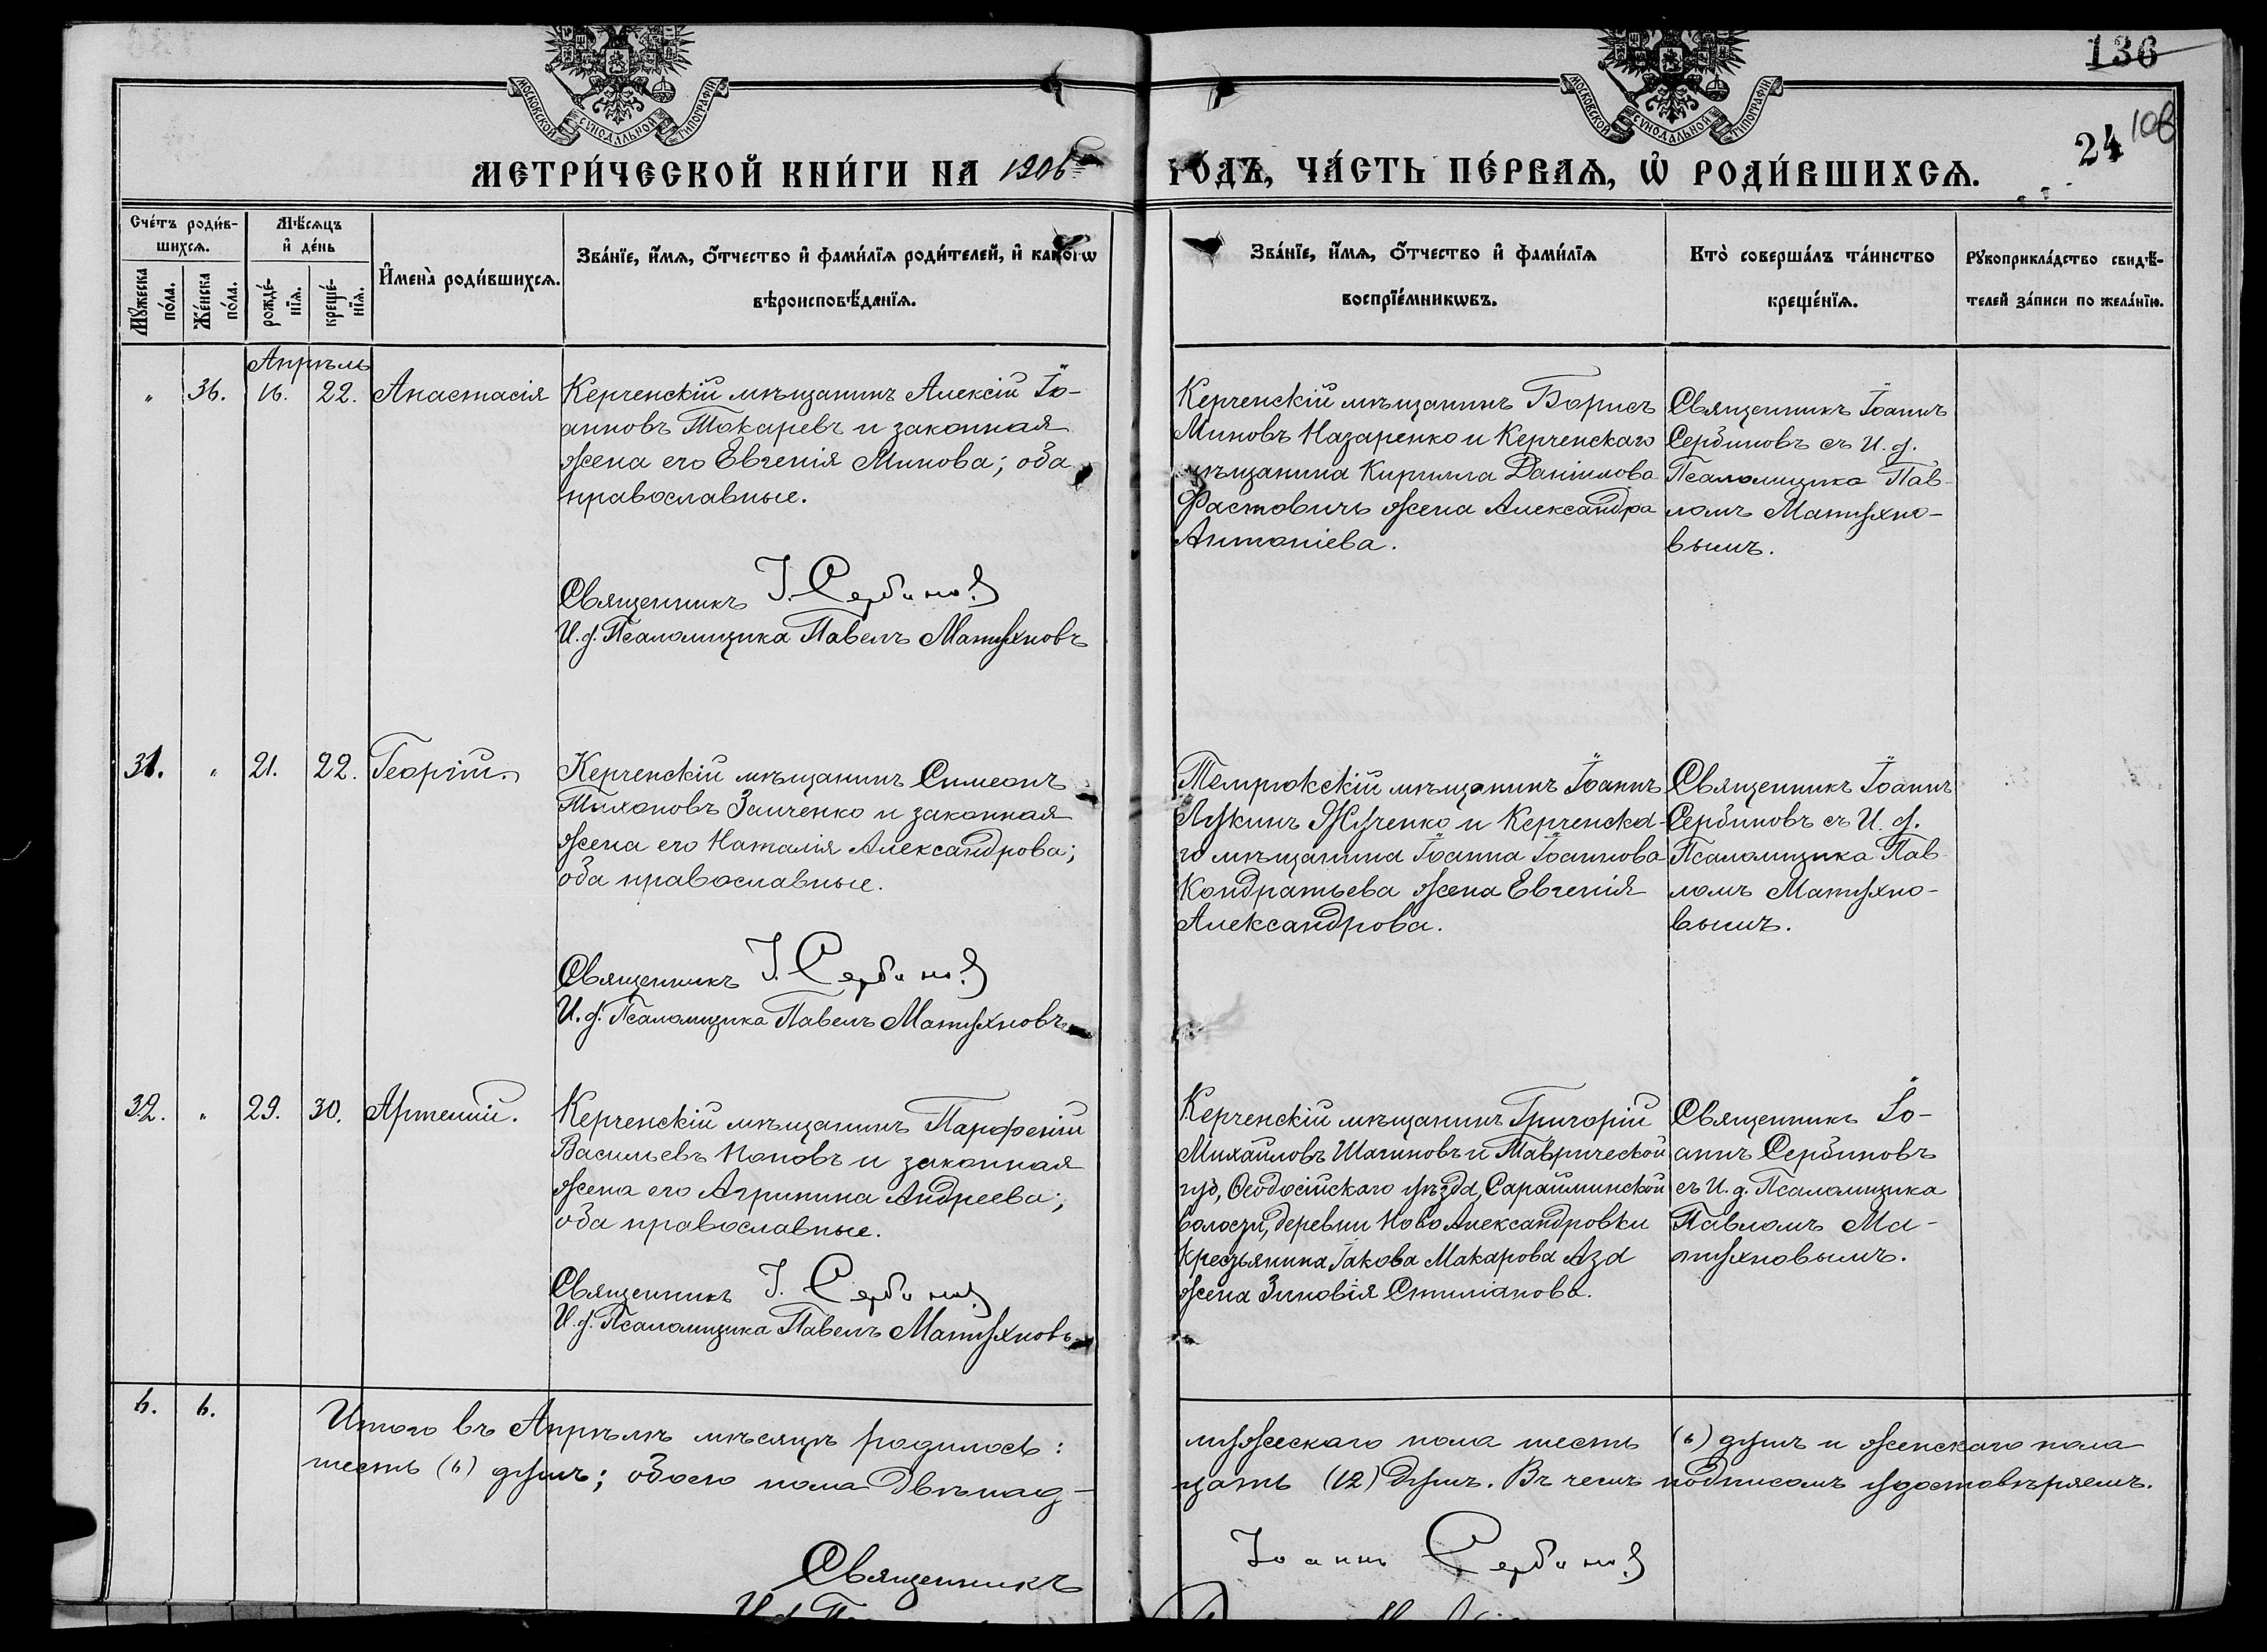 МОСКОВСКОЙ СУНОДАЛЬНОЙ ТИПОГРАФІИ
МОСКОВСКОЙ СУНОДАЛЬНОЙ ТИПОГРАФІИ
136
106
24
МЕТРИ́ЧЕСКОЙ КНИ́ГИ НА 1906 го́дъ, ЧА́СТЬ ПЕ́РВАѦ, Ѡ҆ РОДИ́ВШИХСѦ.
Сче́тъ роди́в-
шихсѧ.
Мꙋ́жеска
по́ла.
Же́нска
по́ла.
Мѣ́сѧцъ
и҆ де́нь
рожде́-
нїѧ.
креще́-
нїѧ.
И҆мена̀ роди́вшихсѧ.
Зва́нїе, и҆́мѧ, ѻ҆́тчество и҆ фами́лїѧ роди́телей, и҆ какогѡ
вѣроисповѣ́данїѧ.
Зва́нїе, и҆́мѧ, ѻ҆́тчество и҆ фами́лїѧ
воспрїе́мникѡвъ.
Кто̀ соверша́лъ та́инство
креще́нїѧ.
Рꙋкоприкла́дство свидѣ́-
телей за́писи по жела́нїю.
Апрѣль
" 36. 16. 22. Анастасія
Керченскій мѣщанинъ Алексій Іо-
анновъ Токаревъ и законная
жена его Евгенія Минова; оба
православные.
Священникъ І. Сербиновъ
И.д. Псаломщика Павелъ Матухновъ
Керченскій мѣщанинъ Борисъ
Миновъ Назаренко и Керченскаго
мѣщанина Кирилла Даніилова
Фастовичъ жена Александра
Антоніева.
Священникъ Іоаннъ
Сербиновъ съ И. д.
Псаломщика Пав-
ломъ Матухно-
вымъ.
31. " 21. 22. Георгій.
Керченскій мѣщанинъ Симеонъ
Тихоновъ Заиченко и законная
жена его Наталія Александрова;
оба православные.
Священникъ І. Сербиновъ
И. д. Псаломщика Павелъ Матухновъ
Темрюкскій мѣщанинъ Іоаннъ
Лукинъ Жученко и Керченска-
го мѣщанина Іоанна Іоаннова
Кондратьева жена Евгенія
Александрова.
Священникъ Іоаннъ
Сербиновъ съ И. д.
Псаломщика Пав-
ломъ Матухно-
вымъ.
32. " 29. 30. Артемій.
Керченскій мѣщанинъ Парфеній
Васильевъ Поповъ и законная
жена его Агрипина Андреева;
оба православные.
Священникъ І. Сербиновъ
И. д. Псаломщика Павелъ Матухновъ
Керченскій мѣщанинъ Григорій
Михайловъ Шагиновъ и Таврической
губ, Ѳеодосійскаго уѣзда, Сарайминской
волости, деревни Ново Александровки
крестьянина Іакова Макарова Аза
жена Зиновія Стиліанова.
Священникъ Іо-
аннъ Сербиновъ
съ И. д. Псаломщика
Павломъ Ма-
тухновымъ.
6. 6.
Итого въ Апрѣлѣ мѣсяцѣ родилось: мужескаго пола шесть (6) душъ и женскаго пола
шесть (6) душъ; обоего пола двѣнад- цать (12) душъ. Въ чемъ подписомъ удостовѣряемъ.
Священникъ Іоаннъ Сербиновъ